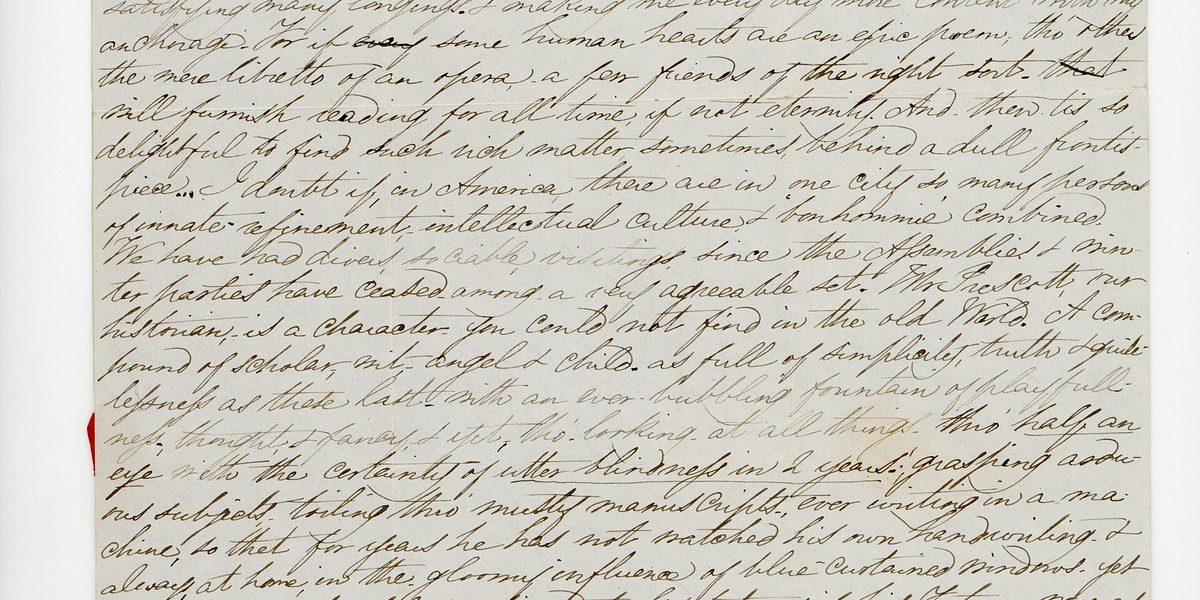 satisfying many longings. & making me every day more content with my
anchorage. For if every some human hearts are an epic poem, tho' others
the mere libretto of an opera, a few friends of the right sort. that
will furnish reading for all time, if not eternity. And then 'tis so
delightful to find such rich matter sometimes, behind a dull frontis-
piece... I doubt if, in America, there are in one city so many persons
of innate refinement, intellectual culture, & 'bonhommie' combined.
We have had divers, sociable, visitings, since the Assemblies & win-
ter parties have ceased among a very agreeable set. Mr. Prescott, our
historian, is a character you could not find in the old World. A com-
pound of scholar, wit, angel & child. as full of simplicity, truth & guile-
lessness as these last. with an ever-bubbling fountain of playfull-
ness, thought, & fancy, & yet, tho' looking at all things thro' half an
eye with the certainty of utter blindness in 2 years! grasping ardu-
ous subjects, toiling thro' musty manuscripts, ever writing in a ma-
chine, so that for years he has not watched his own handwriting &
always at home, in the gloomy influence of blue curtained windows. yet